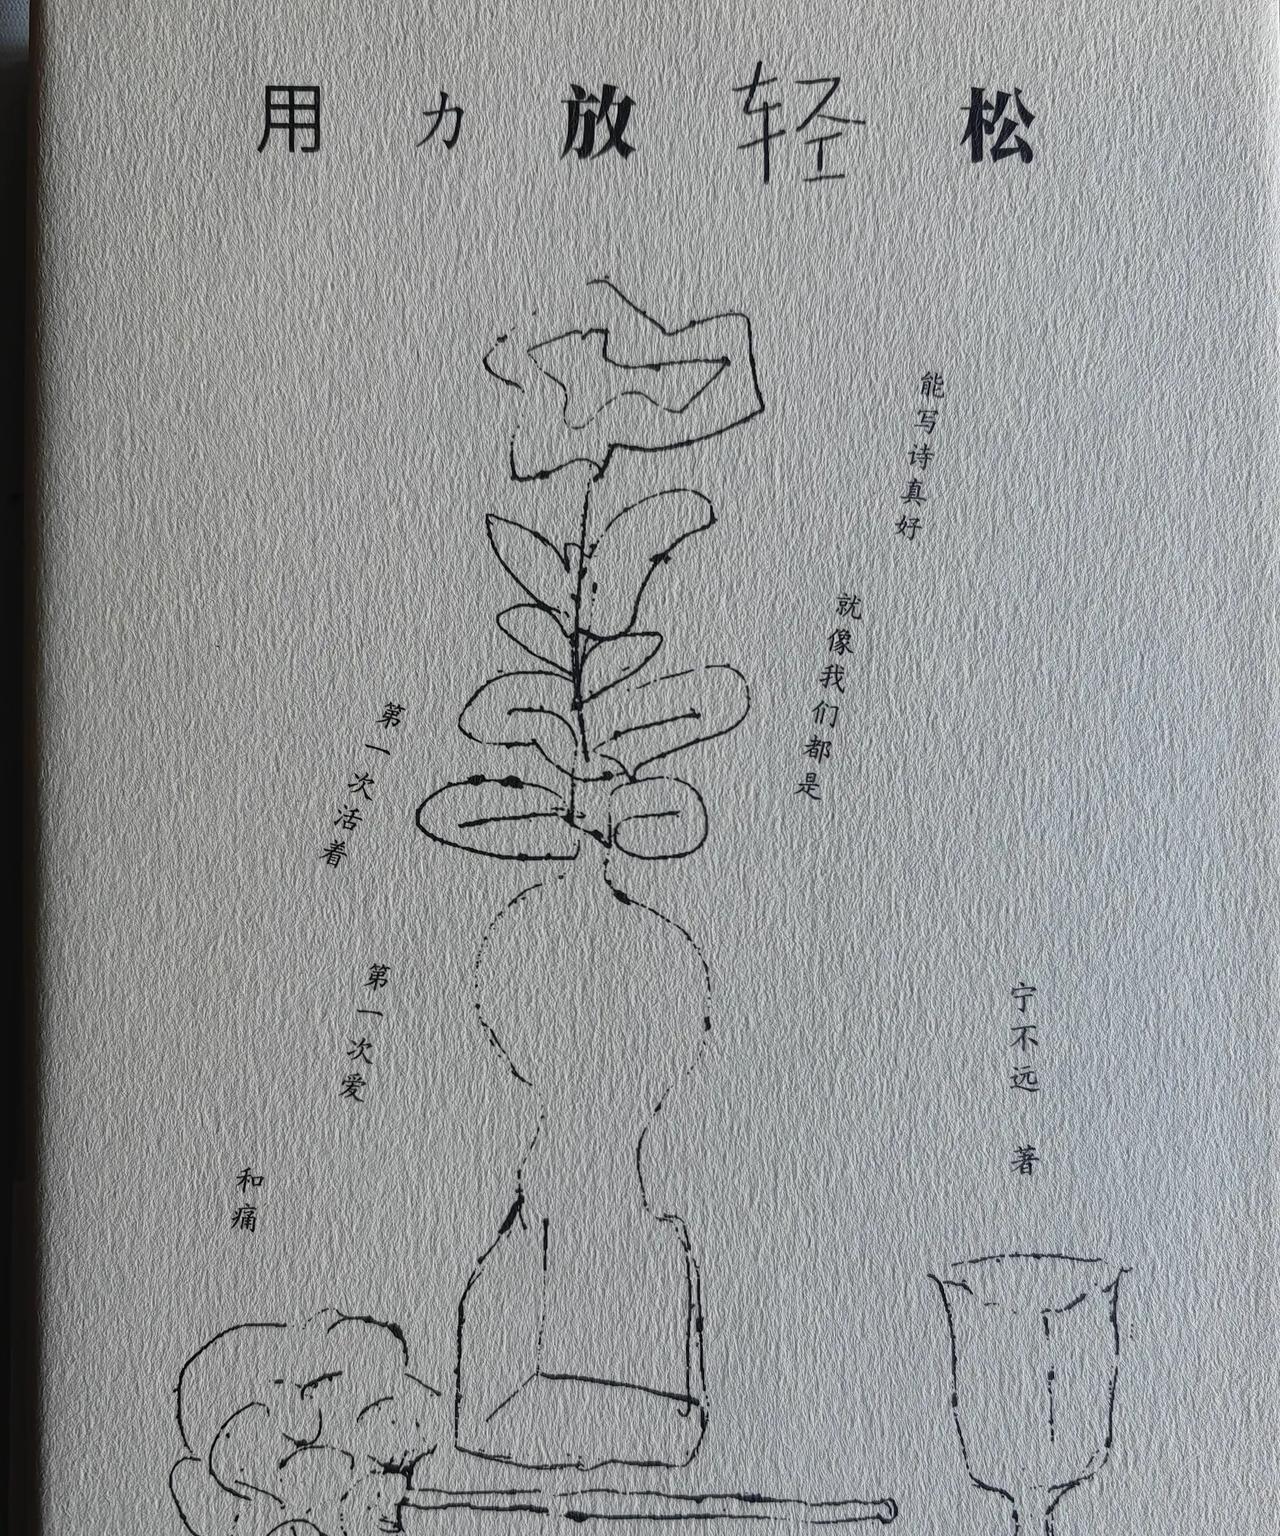 用力放轻松
能写诗真好
就像我们都是
第一次活着
第一次爱
和痛
宁不远 著